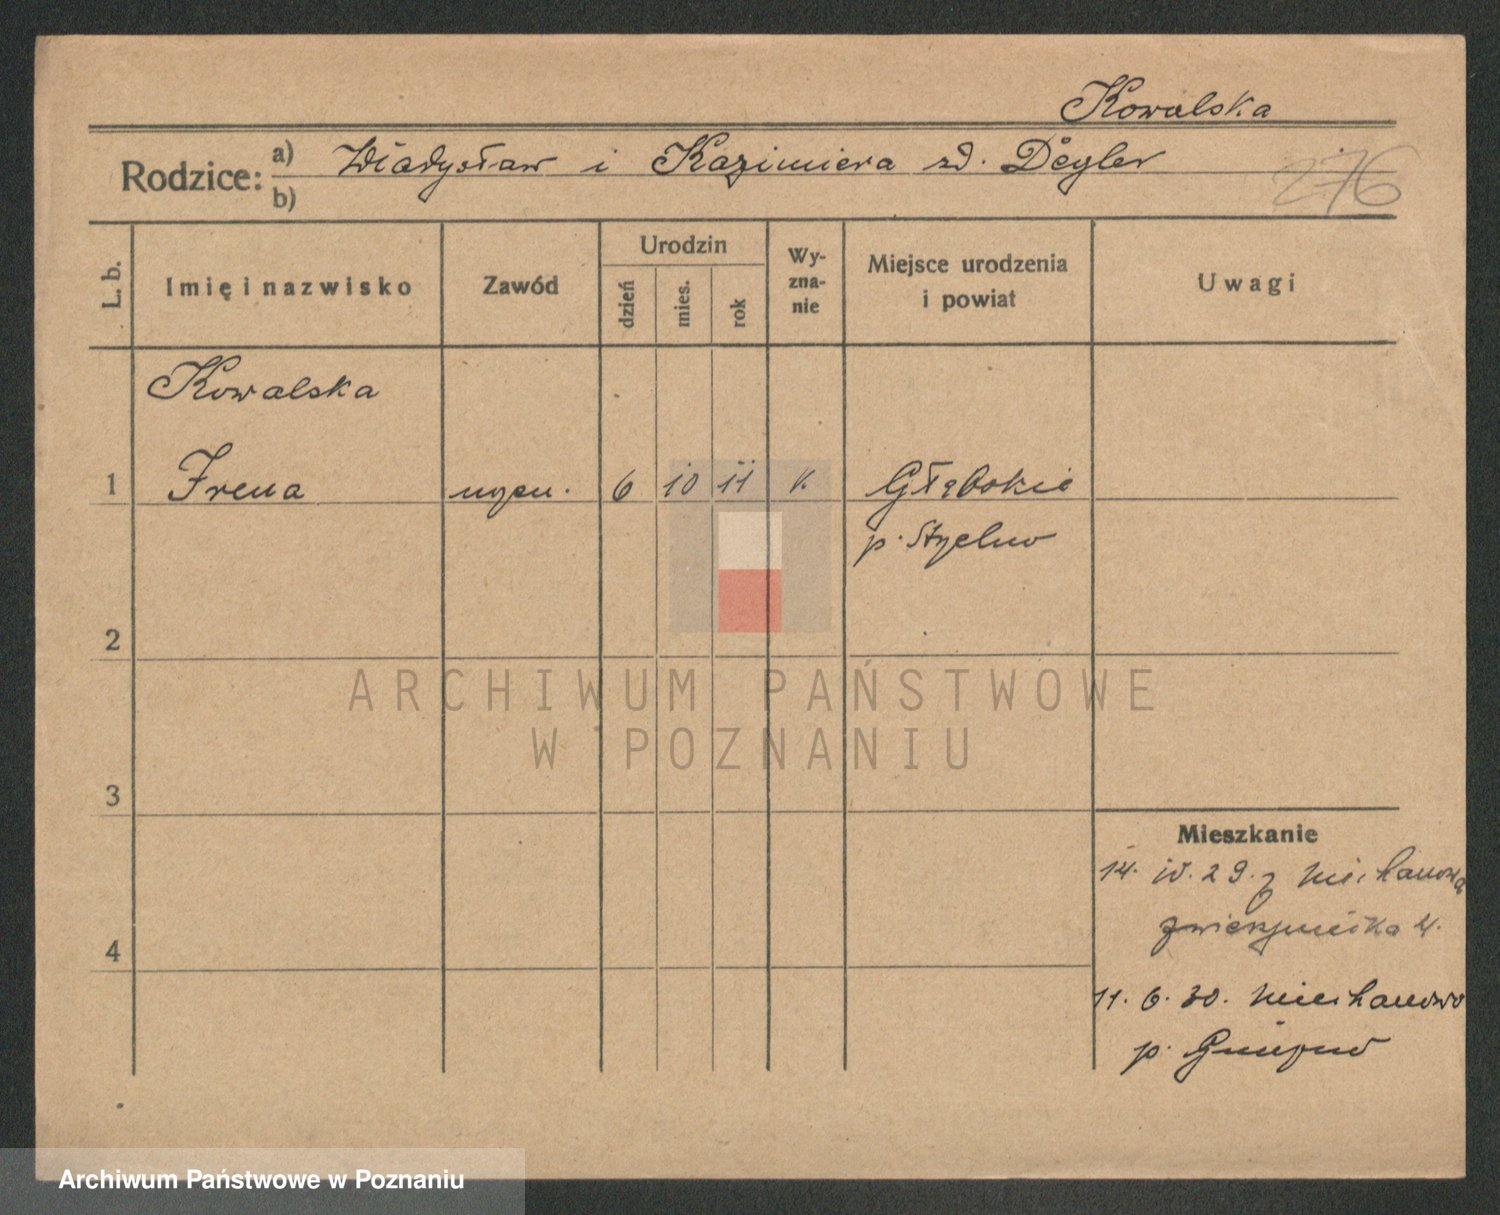 Kowalska
Rodzice: a) Władysław i Kazimiera zd. Degler
b)
276
L. b.
Imię i nazwisko
Zawód
Urodzin
dzień
mies.
rok
Wy-
zna-
nie
Miejsce urodzenia
i powiat
Uwagi
Kowalska
1 Irena uczen. 6 10 11 k. Głębokie
p. Strzelno
2
3
4
Mieszkanie
14. IV. 29. z Miechanowa
Zwierzyniecka 4.
11. 6. 30. Miechanowo
p. Gniezno
ARCHIWUM PAŃSTWOWE
W POZNANIU
Archiwum Państwowe w Poznaniu